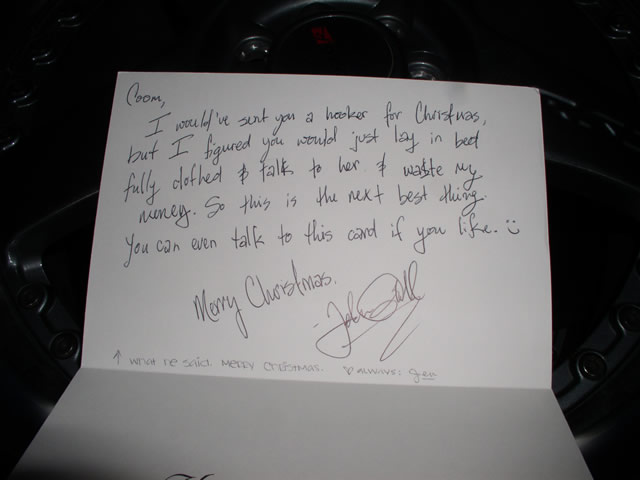 Coom,
I would've sent you a hooker for Christmas,
but I figured you would just lay in bed
fully clothed & talk to her & wa$te my
money. So this is the next best thing.
You can even talk to this card if you like. :)
Merry Christmas.
↑ what he said. Merry Christmas. ♡ always: gen